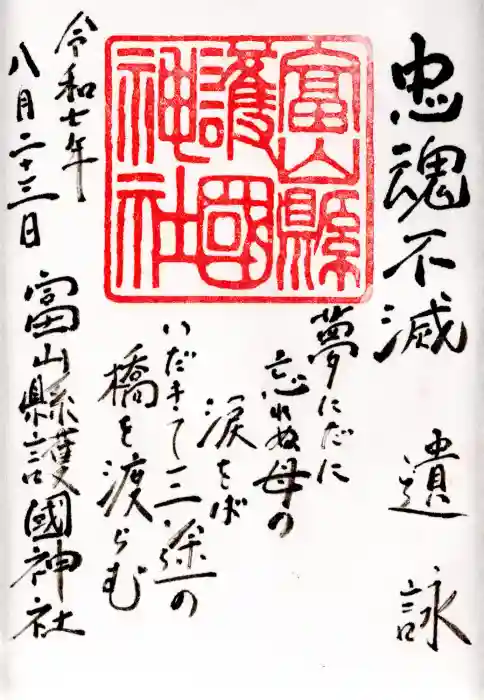 忠魂不滅　遺詠
富山縣
護國
神社
夢にだに
忘れぬ母の
涙をば
いだきて三途の
橋を渡らむ
令和七年
八月二十三日
富山縣護國神社